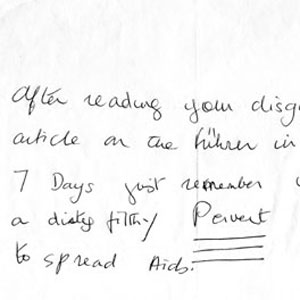 After reading your disg
article on the Führer in
7 Days just remember
a dirty filthy Pervert
to spread Aids.